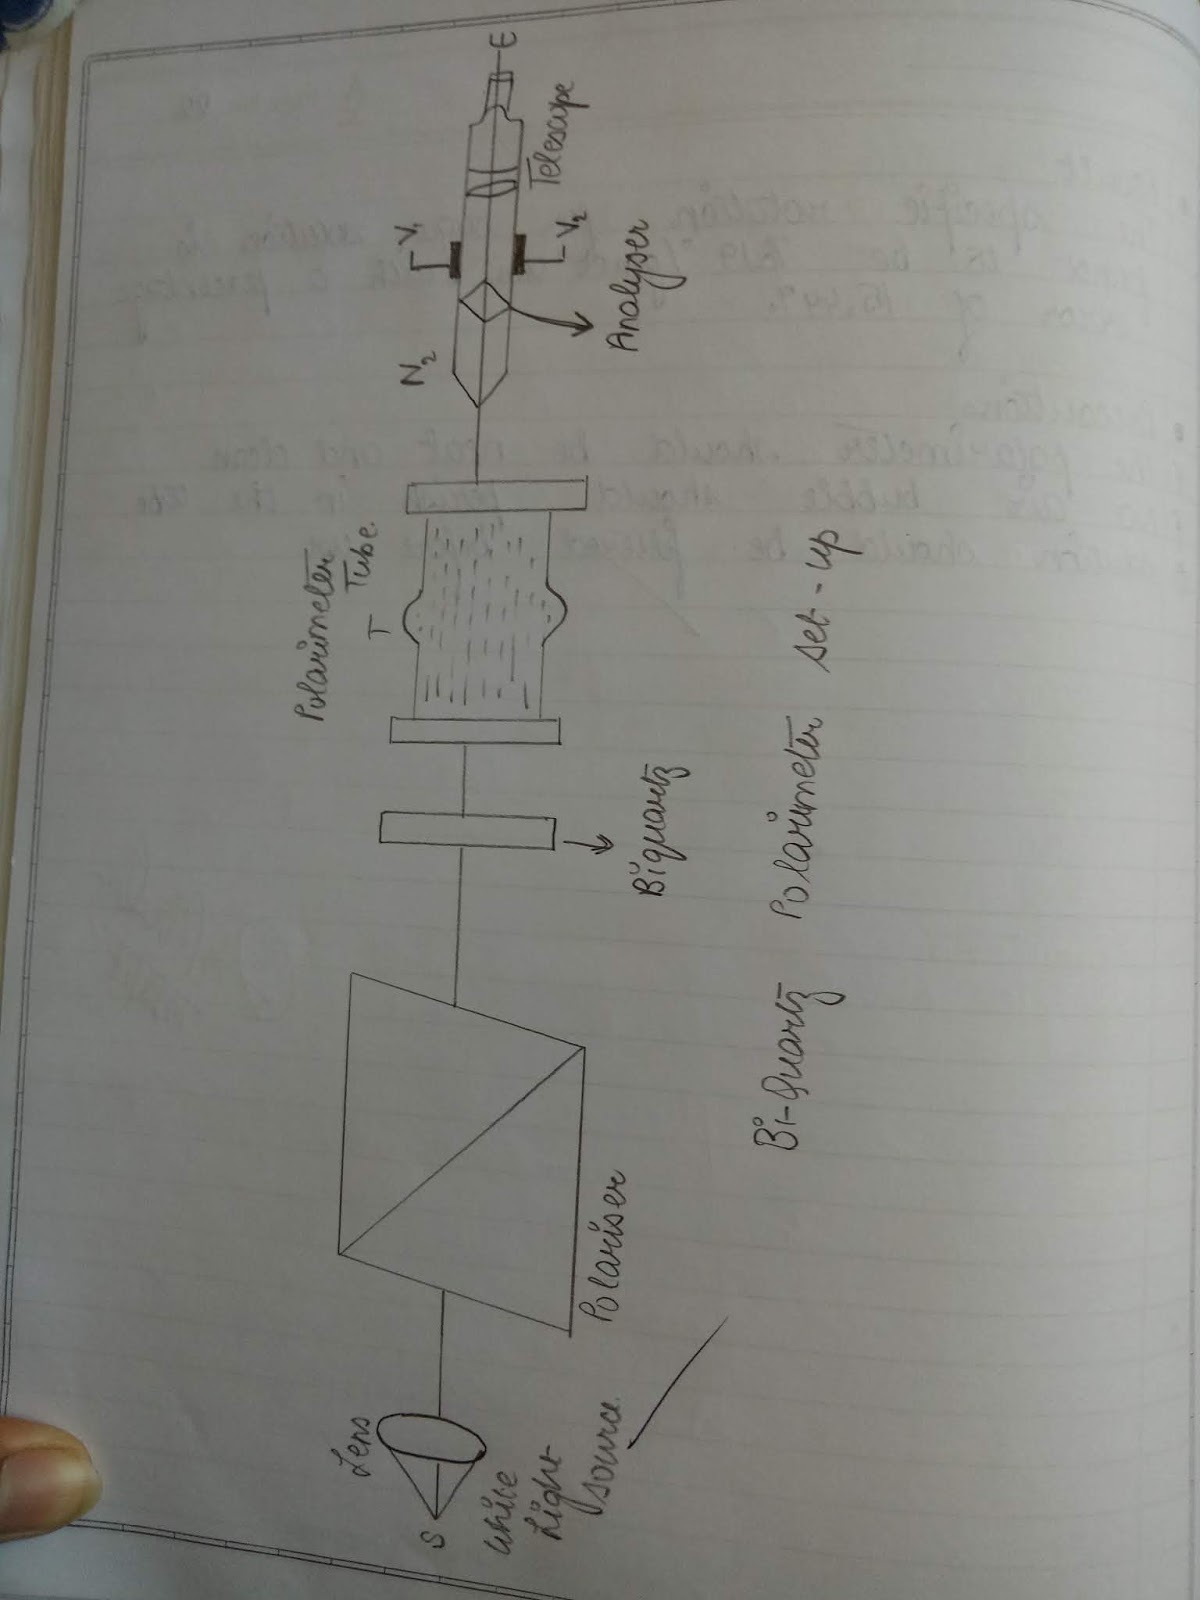 Lens
S
White
Light
source
Polariser
Biquartz
Polarimeter
Tube
T
N2
Analyser
V1
V2
Telescope
E
Bi-Quartz Polarimeter set-up